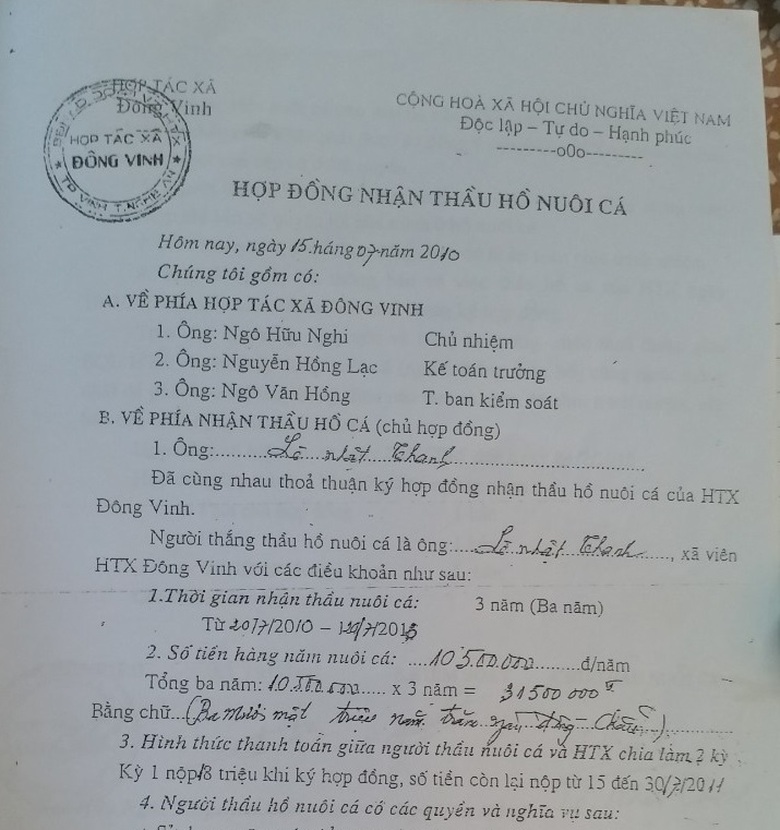 HỢP TÁC XÃ
Đông Vinh
HỢP TÁC XÃ
ĐÔNG VINH
TP VINH T.NGHỆ AN
CỘNG HOÀ XÃ HỘI CHỦ NGHĨA VIỆT NAM
Độc lập – Tự do – Hạnh phúc
---------o0o---------
HỢP ĐỒNG NHẬN THẦU HỒ NUÔI CÁ
Hôm nay, ngày 15 tháng 07 năm 2010
Chúng tôi gồm có:
A. VỀ PHÍA HỢP TÁC XÃ ĐÔNG VINH
1. Ông: Ngô Hữu Nghi Chủ nhiệm
2. Ông: Nguyễn Hồng Lạc Kế toán trưởng
3. Ông: Ngô Văn Hồng T. ban kiểm soát
B. VỀ PHÍA NHẬN THẦU HỒ CÁ (chủ hợp đồng)
1. Ông: Lê nhật Thanh
Đã cùng nhau thoả thuận ký hợp đồng nhận thầu hồ nuôi cá của HTX
Đông Vinh.
Người thắng thầu hồ nuôi cá là ông: Lê nhật Thanh, xã viên
HTX Đông Vinh với các điều khoản như sau:
1. Thời gian nhận thầu nuôi cá: 3 năm (Ba năm)
Từ 20/7/2010 – /7/2013
2. Số tiền hàng năm nuôi cá: 10 500.000 đ/năm
Tổng ba năm: 10.500.000 x 3 năm = 31500 000đ
Bằng chữ (Ba mươi mốt triệu năm trăm ngàn đồng chẵn)
3. Hình thức thanh toán giữa người thầu nuôi cá và HTX chia làm 2 kỳ
Kỳ 1 nộp 18 triệu khi ký hợp đồng, số tiền còn lại nộp từ 15 đến 30/7/2011
4. Người thầu hồ nuôi cá có các quyền và nghĩa vụ sau: